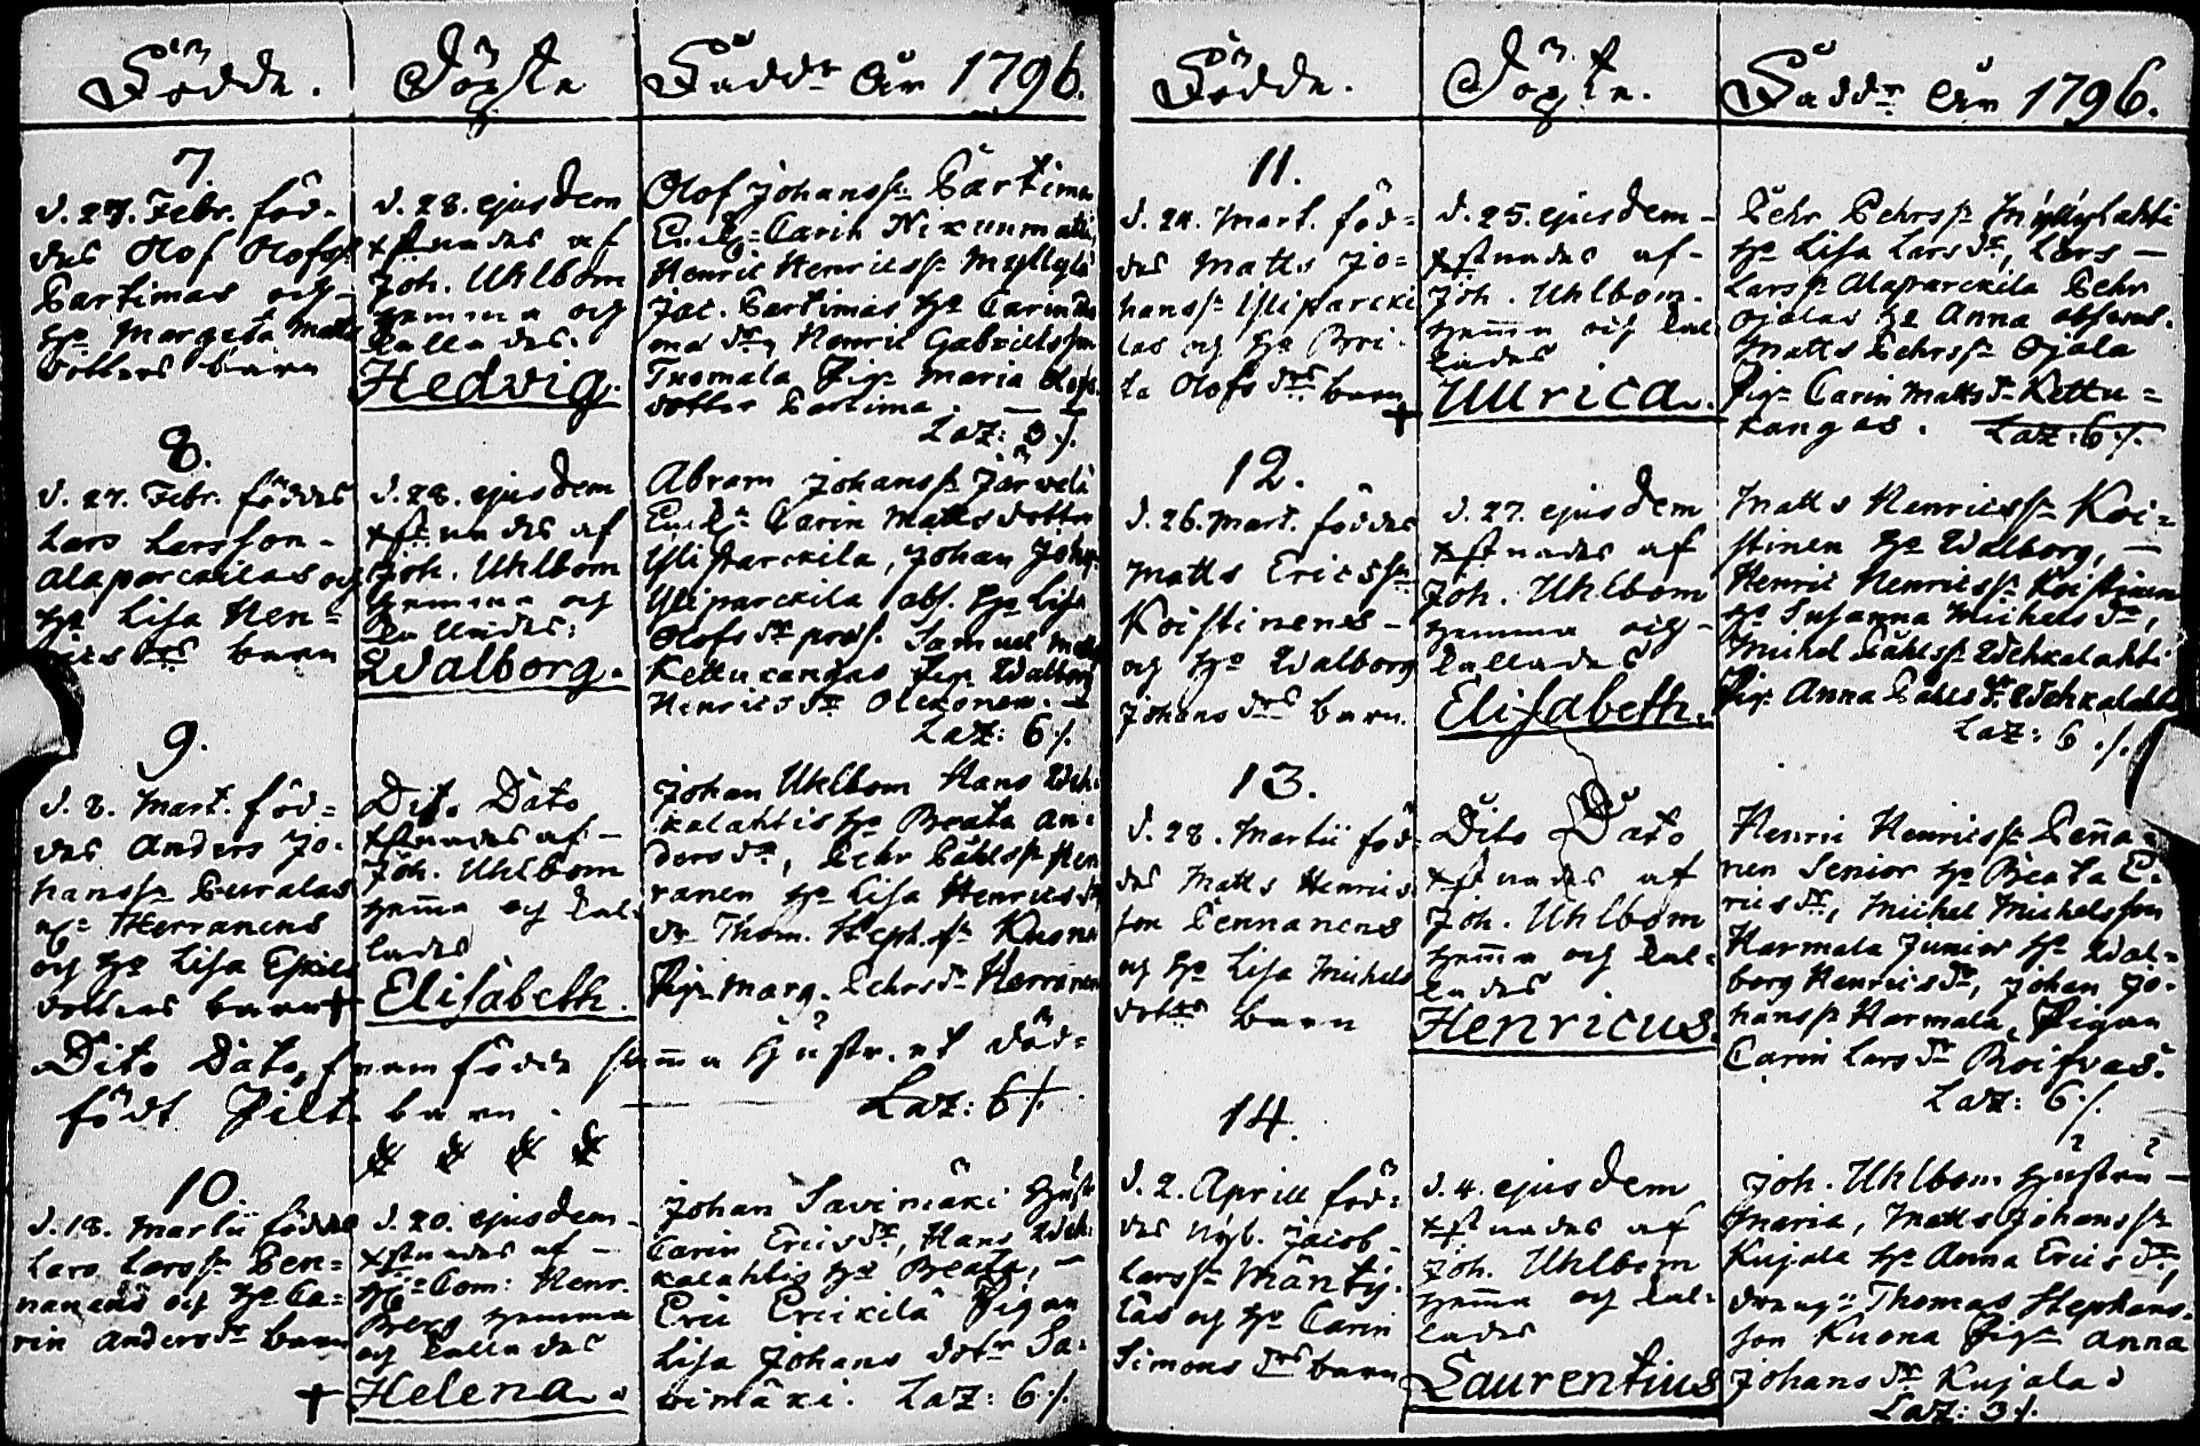 Födde.
Döpte
Faddr år 1796.
7.
d. 27. Febr. föd-
des Olof Olofss
Partimas och
hu Margeta Matts
dotters barn
d. 28. ejusdem
xstnades af
Joh. Uhlbom
hemma och
kallades.
Hedvig.
Olof Johanss: Partima
Enck: Carin
Henric Henricss: Myllylä
Jac. Partimas hu Carin
Henric Gabrielsson
Tuomala Pig: Maria Olofs
dotter Partima. —
Laz: 3 ./.
8.
d. 27. Febr. föddes
Lars Larsson-
Alaparckilas och
hu Lisa Hen-
rics drs barn
d. 28. ejusdem
xstnades af
Joh. Uhlbom
hemma och
kallades:
Walborg.
Abram Johanss: Järwelä
Enck: Carin Mattsdotter
Yliparckila, Johan Johs:
Yliparckila abs. hu Lisa
Olofs dr præs. Samuel Matts
Kettukangas Pig: Walborg
Henrics dr Olckonen. —
Laz: 6 ./.
9.
d. 8. Mart. föd=
des Anders Jo-
hanss: Puralas
Herranens
och hu Lisa Eskils
dotters barn +
Dito Dato
xstnades af-
Joh. Uhlbom
hemma och kal-
lades
Elisabeth.
Johan Uhlbom Hans Weh-
kalahtis hu Beata An-
ders dr, Pehr Påhlss: Her
ranen hu Lisa Henrics dr
dr Thom. Steph.sn Kuona
Pig: Marg. Pehrs dr Herranen
Dito Dato, framfödde samma hustr. et död=
födt Pilt barn. — Laz: 6 ./.
10.
d. 18. Martii föddes
Lars Larss: Pen=
nanens och hu Ca=
rin Anders dr barn
+
d. 20. ejusdem-
xstnades af -
Com: Henr.
Berg hemma
och kallades
Helena.
Johan Savimäki hust
Carin Erics dr, Hans Weh-
kalahtis hu Beata, —
Eric Erckilä Pigan
Lisa Johans dotr Sa-
vimäki. Laz: 6 ./.
Födde.
Döpte.
Faddr år 1796.
11.
d. 24. Mart. föd=
des Matts Jo=
hanss: Yliparcki
las och hu Bri-
ta Olofs drs barn
+
d. 25. ejusdem-
xstnades af-
Joh. Uhlbom.
hemma och kal-
lades
Ullrica.
Pehr Pehrss: Myllylahti
hu Lisa Lars dr, Lars —
Larss: Alaparckila Pehr
Ojalas hu Anna absens.
Matts Pehrss: Ojala
Pig: Carin Matts dr Kettu=
kangas. Laz: 6 ./.
12.
d. 26. Mart. föddes
Matts Ericss:
Koistinens -
och hu Walborg
Johans drs barn.
d. 27. ejusdem
xstnades af
Joh. Uhlbom
hemma och -
kallades
Elisabeth.
Matts Henricss: Koi=
stinen hu Walborg, —
Henric Henricss: Koistinen
hu Susanna Michels dr,
Michel Påhlss: Wehkalahti
Pig: Anna Påhls dr Wehkalahti
Laz: 6 ./.
13.
d. 28. Martii föd-
des Matts Henrics
son Pennanens
och hu Lisa Michels
dotrs barn
Dito Dato
xstnades af
Joh. Uhlbom
hemma och kal=
lades
Henricus.
Henric Henricss: Penna-
nen Senior hu Beata E-
rics dr, Michel Michelsson
Harmala Junior hu Wal=
borg Henrics dr, Johan Jo-
hanss: Harmala, Pigan
Carin Lars dr Roifvas.
Laz: 6 ./.
14.
d. 2. Aprill föd=
des Nyb. Jacob
Larss: Mänty-
läs och hu Carin
Simons drs barn
d. 4. ejusdem
xstnades af
Joh. Uhlbom
hemma och kal=
lades
Laurentius
Joh. Uhlbom hustru —
Maria, Matts Johanss:
Kujala hu Anna Erics dr,
dreng: Thomas Stephans-
son Kuona Pig: Anna
Johans dr Kujala
Laz: 3 ./.